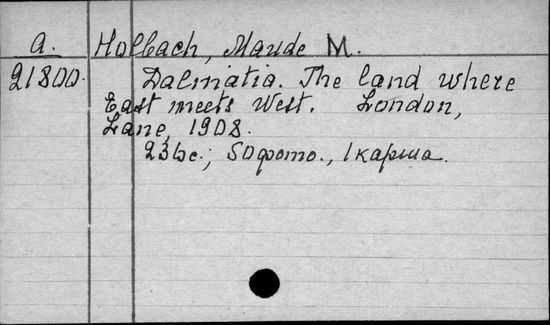 A. Holbach, Maude M.
21800. Dalmatia. The land where
East meets West. London,
Lane, 1908.
236с.; 50фото., 1карта.